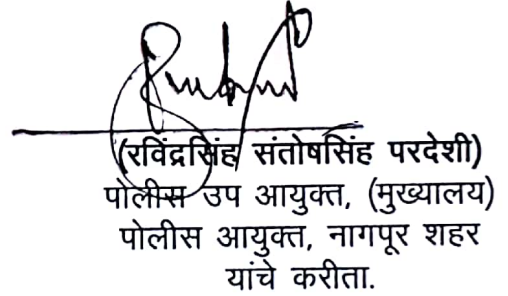 (रविंद्रसिंह संतोषसिंह परदेशी)
पोलीस उप आयुक्त, (मुख्यालय)
पोलीस आयुक्त, नागपूर शहर
यांचे करीता.